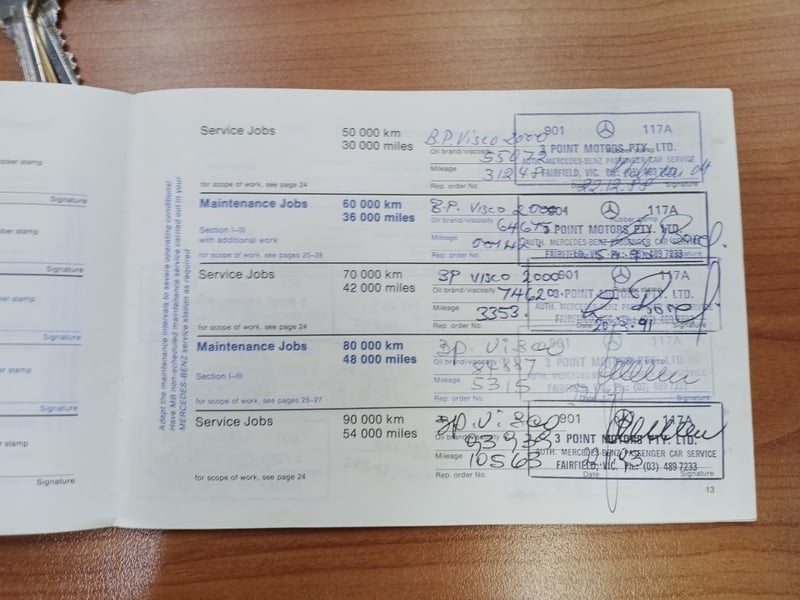 ber stamp
Signature
Signature
Signature
Signature
Signature
Signature
Adapt the maintenance intervals to severe operating conditions!
Have MB non-scheduled maintenance service carried out in your
MERCEDES-BENZ service station as required
Service Jobs
50 000 km
30 000 miles
B.P. Visco 2000
Oil brand/viscosity
55072
Mileage
Rep. order No.
for scope of work, see page 24
901 117A
3 POINT MOTORS PTY. LTD.
AUTH. MERCEDES-BENZ PASSENGER CAR SERVICE
FAIRFIELD, VIC. Ph: (03) 489 7233
Date
Signature
22.12.88
Maintenance Jobs
60 000 km
36 000 miles
Section I–III
with additional work
for scope of work, see pages 25–26
B.P. Visco 2000
Oil brand/viscosity
64675
Mileage
Rep. order No.
901 117A
3 POINT MOTORS PTY. LTD.
AUTH. MERCEDES-BENZ PASSENGER CAR SERVICE
FAIRFIELD, VIC. Ph: (03) 489 7233
Service Jobs
70 000 km
42 000 miles
for scope of work, see page 24
BP VISCO 2000
Oil brand/viscosity
74620
Mileage
3353
Rep. order No.
901 117A
3 POINT MOTORS PTY. LTD.
AUTH. MERCEDES-BENZ PASSENGER CAR SERVICE
FAIRFIELD, VIC. Ph: (03) 489 7233
Date
Signature
20.3.91
Maintenance Jobs
80 000 km
48 000 miles
Section I–III
for scope of work, see pages 25–27
Bp. Visco
Oil brand/viscosity
84887
Mileage
5315
Rep. order No.
901 117A
3 POINT MOTORS PTY. LTD.
AUTH. MERCEDES-BENZ PASSENGER CAR SERVICE
FAIRFIELD, VIC. Ph: (03) 489 7233
Service Jobs
90 000 km
54 000 miles
for scope of work, see page 24
Bp. Visco
Oil brand/viscosity
93939
Mileage
10563
Rep. order No.
901 117A
3 POINT MOTORS PTY. LTD.
AUTH. MERCEDES-BENZ PASSENGER CAR SERVICE
FAIRFIELD, VIC. Ph: (03) 489 7233
Date
Signature
13